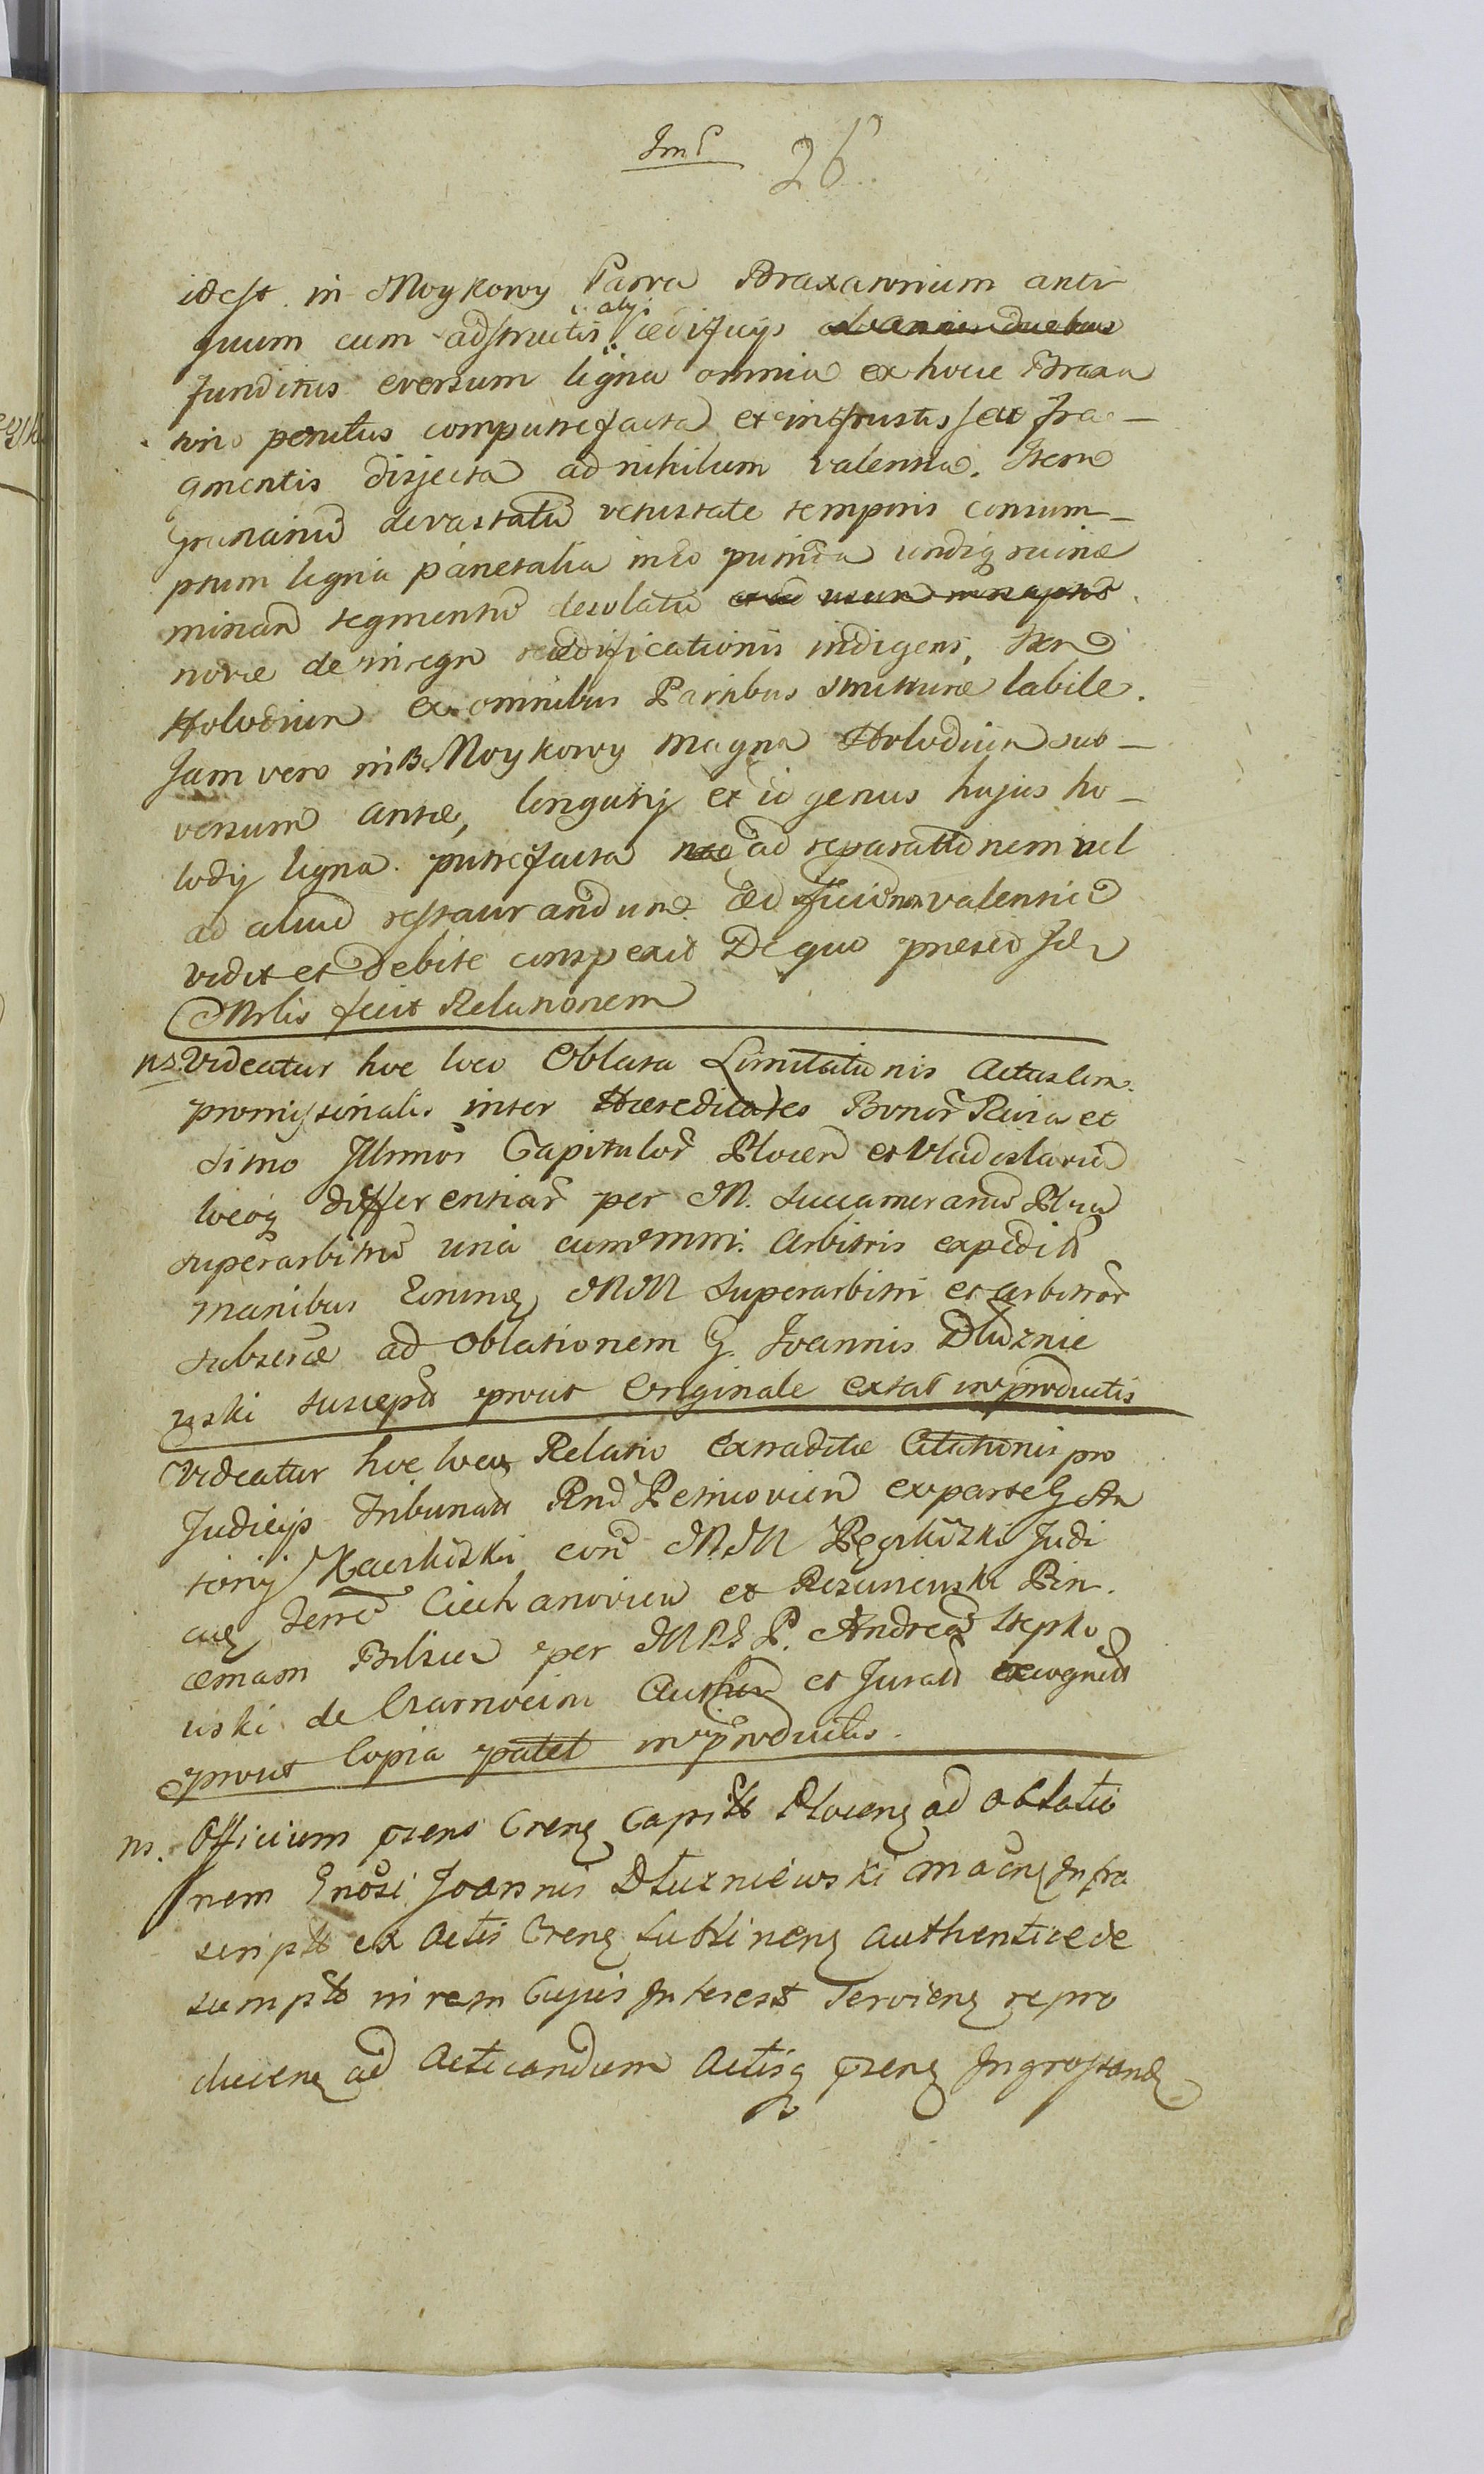 26
idest in Moykowy Parva Braxatorium anti
quum cum adstructis alys ædificijs
funditus eversum ligna omnia ex hocce Braxa
torio penitus computrefacta et in frustis seu fra-
gmentis disjecta ad nihilum valentia. Item
Granariũ devastatũ vetustate temporis consum-
ptum ligna parietalia in eo putrida undiq ruinæ
minan tegmentũ desolatũ
novæ de integro reædificationis indigens, Item
Holodium ex omnibus Partibus structuræ labile.
Jam vero in B. Moykowy Magna Holodium sub-
versum antæ, longurij et id genus hujus ho-
lodij ligna putrefacta nec ad reparationem vel
ad aliud restaurandum Ædificium valentia
vidit et debite conspexit De quo præsed Idẽ
Mrlis fecit Relationem
ns. Videatur hoc loco Oblata Limitationis Actus com
promissionalis inter Hæreditates Bonoȓ Reiva et
Simo Illmoȓ Capituloȓ Plocen et Vladislavien
locoq differentiaȓ per M. Succameranũ Plocen
superarbitrũ una cum mm. Arbitris expediti
manibus Eorund MM Superarbitri et arbitroȓ
subscræ ad oblationem G. Joannis Dłuznie
wski suscepta prout Originale extat in productis
Videatur hoc loco Relatio extraditæ Citationis pro
Judicijs Tribunali Rnd Petricovien ex parte G An
tonij Kaczkoski con MM Pęgkoski Judi
cis Terrę Ciechanovien et Rszuniewski Pin
cernam Bilscen per MRS P. Andream Stepko
wski de Czarnocini Authen et Jurati recognita
prout Copia patet in productis.
ns. Officium præns Crens Capitle Plocens ad oblatio
nem Gnosi Joannis Dłuzniewski Infra
scripti ex Actis Crens Lublinens authentice de
sumpti in rem Cujus Interest Serviens repro
ducens ad Acticandum Actisq præns Ingrossand